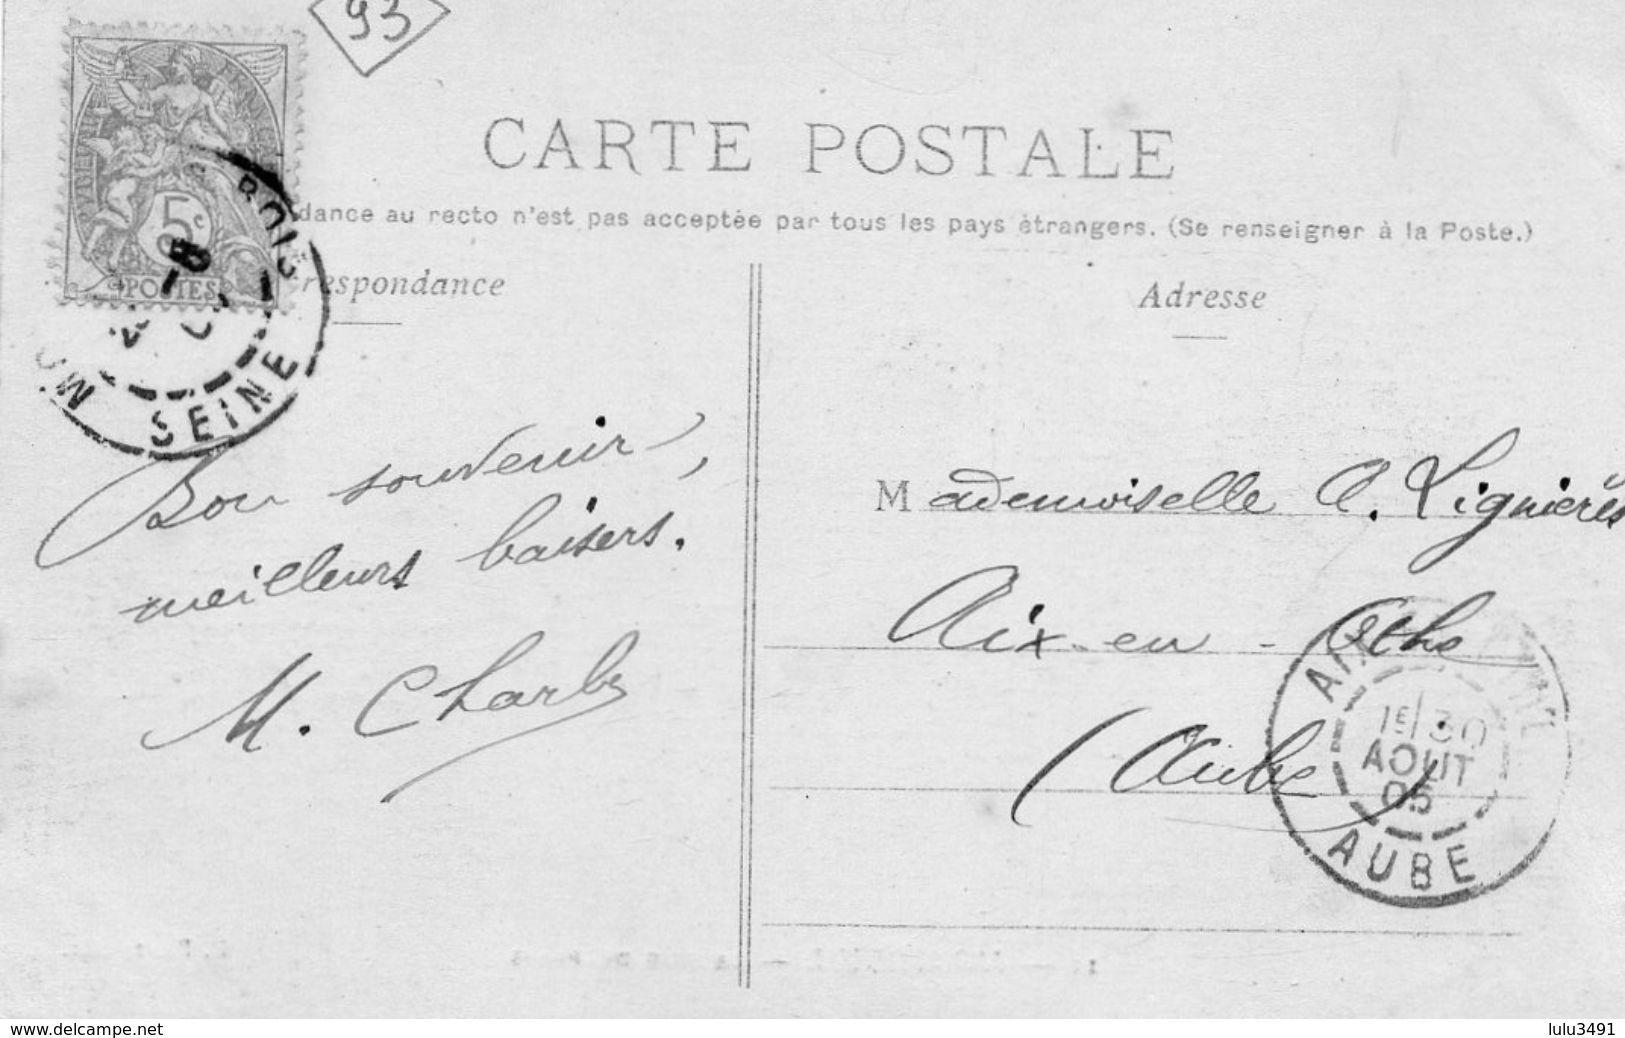 93
CARTE POSTALE
dance au recto n'est pas acceptée par tous les pays étrangers. (Se renseigner à la Poste.)
respondance
Adresse
5c
POSTES
BOIS
SEINE
Bon souvenir,
meilleurs baisers.
M. Charles
Mademoiselle A. Lignières
Aix-en-Othe
(Aube)
1E/30
AOUT
05
AUBE
www.delcampe.net
lulu3491